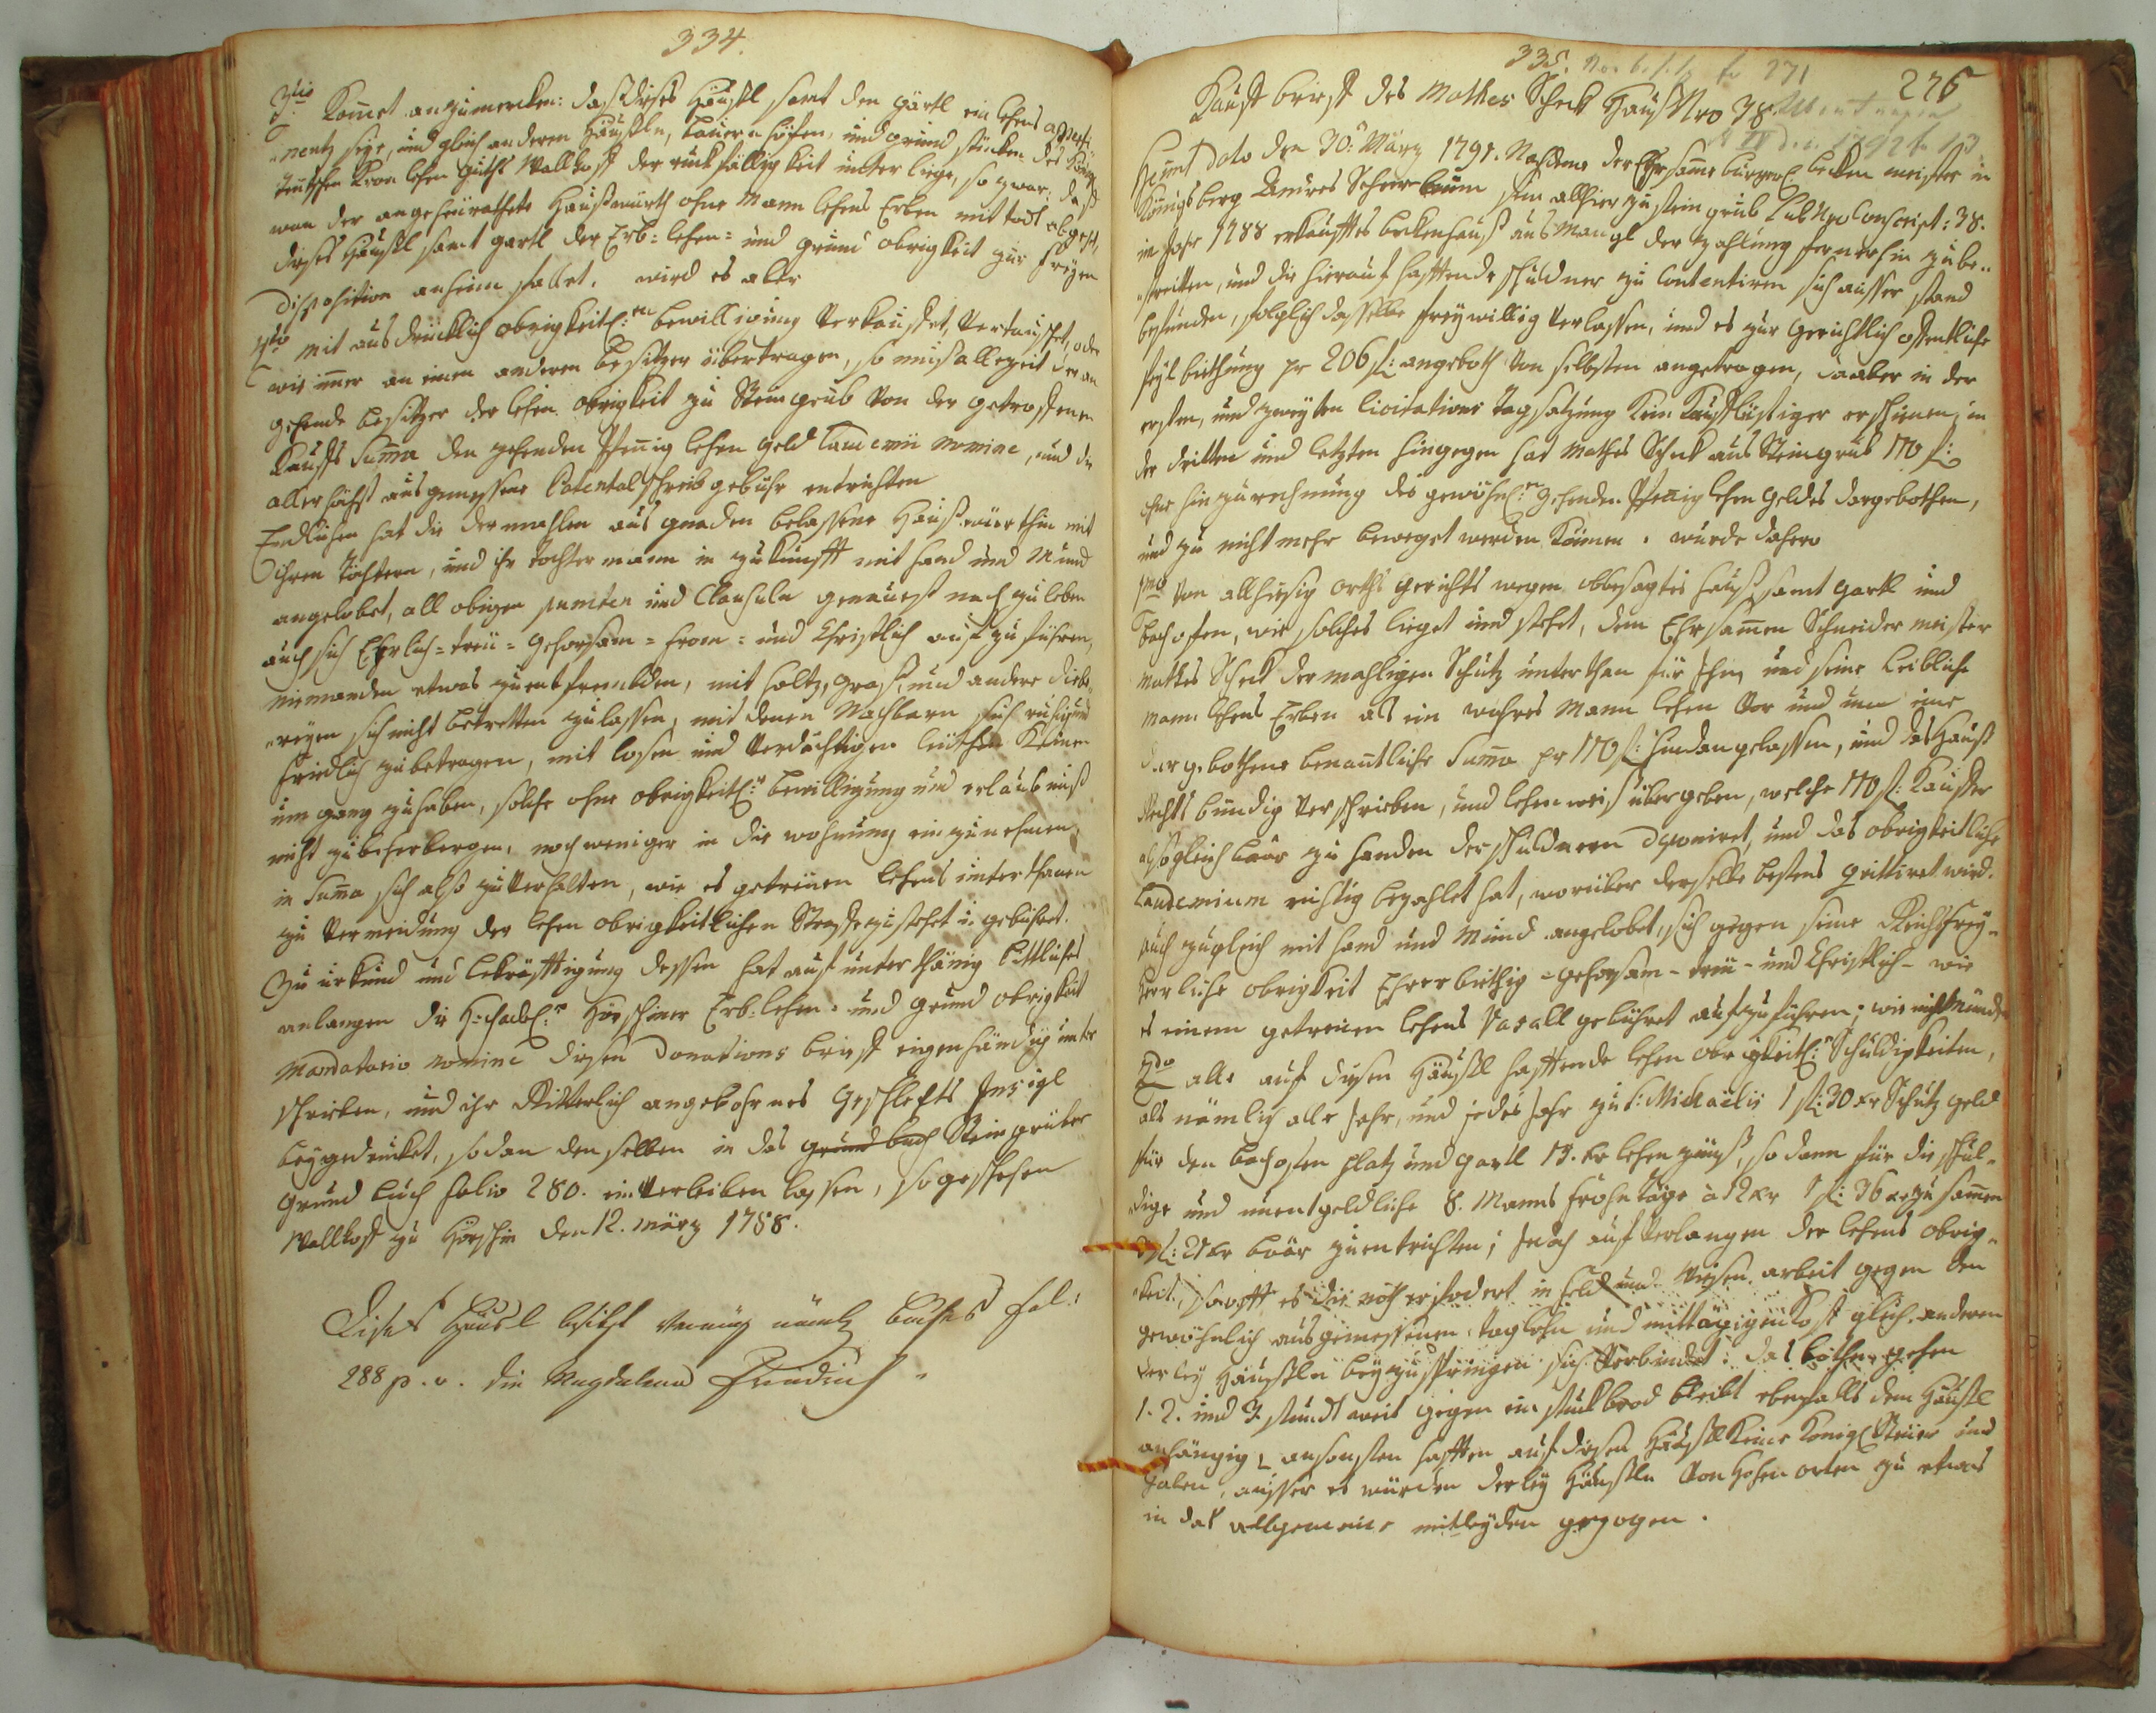 334.
3tio Kom̅et anzumercken: daß dieses Häußl samt den gärtl ein lehens apperti-
„nentz seye, und gleich anderen Häußlen, bauern höfen, und grund stücken des
teutschen Kron lehen guths Wallhoff der ruckfälligkeit unterliege, so zwar: daß
wan der angeheurathete Haußwürth ohne Mann lehens Erben mit todt abgehet,
dieses Häußl samt gartl der Erb= lehen= und grund obrigkeit zur freyen
disposition anheim fallet. wird es aber
4to mit ausdrücklich obrigkeitl:en bewilligung verkauffet, vertauschet, oder
wie im̅er an einen anderen besitzer übertragen, so muß allezeit der an
gehende besitzer der lehen obrigkeit zu Steingrub von der getroffenen
Kaufs Sum̅a den zehenden Pfen̅ig lehen geld Laudemii nomine, und die
allerhöchst ausgemessene Patental schreibgebühr entrichten
Endlichen hat die dermahlen aus gnaden belassene Haußwürthin mit
ihren töchtern, und ihr tochtermann in zukunfft mit hand und Mund
angelobet, all obigen puncten und Clausuln genauest nach zu leben
auch sich Ehrlich= treu= gehorsam= from= und Christlich auf zu führen,
niemanden etwas zu entfremden, mit holtz, graß, und andere diebe-
„reyen sich nicht betretten zu lassen, mit denen Nachbarn sich ruhig und
friedlich zu betragen, mit losen und verdächtigen leuthen Keinen
umgang zu haben, solche ohne obrigkeitl:r bewilligung und erlaubnuß
nicht zu beherbergen, noch weniger in die wohnung einzunehmen,
in Sum̅a sich also zu verhalten, wie es getreuen lehens unterthanen
zu Vermeidung der lehen obrigkeitlichen Straffe zustehet u: gebühret.
Zu urkund und bekräfftigung dessen hat auf unterthänig bittliches
anlangen die Hörschiner Erb= lehen= und grund obrigkeit
Mandatario nomine diesen donations brief eigenhändig unter
schrieben, und ihr Ritterlich angebohrnes Geschlechts Insigl
beygedrucket, sodan denselben in das grund buch Steingruber
grund buch folio 280. einverleiben lassen, so geschehen
Wallhoff zu Hörschin den 12. märz 1788.
Dises Häusl besitzt vermög Buches fol:
288 p. v. die Magdalena Friedrich.
335. No. 6. f. 13 fo 271
276
Kauf brief des Mathes Scheck Hauß Nro 38.
Heunt dato den 30: März 1791. Nachdeme der Ehrsam̅e burgerl becken meister in
Königsberg Andres Scheerbaum sein allhier zu steingrub sub Nro Conscript: 38.
im Jahr 1788 erkaufftes beckenhauß aus Mangl der zahlung fernerhin zu be„
„streitten, und die hierauf hafftende schuldner zu Contentiren sich ausser stand
befunden, folglich dasselbe freywillig verlassen, und es zur gerichtlich offentlicher
feylbiethung pr 206 fl: angeboth von selbsten angetragen, da aber in der
ersten, und zweyten licitations Tagsatzung Kein Kauflustiger erschienen, in
der dritten und letzten hingegen hat Mathes Scheck aus Steingrub 170 fl:
ohne hinzurechnung des gewöhnl:en zehenden Pfen̅ig lehen geldes dargebothen,
und zu nicht mehr beweget werden Können. wurde dahero
1mo Von allhiesig orths gerichts wegen obbesagtes hauß samt gartl und
bachofen, wie solches lieget und stehet, dem Ehrsam̅en Schneider meister
Mathes Scheck dermahligen Schutz unterthan für Ihn, und seine leibliche
Mann lehens Erben als ein wahres Mann lehen vor und um eine
dargebothene benan̅tliche Sum̅a pr 170 fl: hindangelassen, und das Hauß
Rechts bündig verschrieben, und lehenweiß übergeben, welche 170 fl: Kauffer
alsogleich baar zu handen der schuldnern deponiret, und das obrigkeitliche
Laudemium richtig bezahlet hat, worüber derselbe bestens quittiret wird.
auch zugleich mit hand und Mund angelobet, sich gegen seine Reichsfrey-
herrliche obrigkeit Ehrerbiethig- gehorsam- treu- und Christlich- wie
es einem getreuen lehens Vasall gebühret aufzuführen; wie nicht minder
2do alle auf diesen Häußl hafftende lehen obrigkeitl:n Schuldigkeiten,
als nämlich alle Jahr, und jedes Jahr zu S: Michaelis 1 fl: 30 xr Schutz geld
für den bachofen platz und gartl 15. xr lehen zünß, sodann für die schul-
„dige und unentgeldliche 8. Manns frohn täge à 12 xr 1 fl: 36 xr zusam̅en
3 fl: 21 xr baar zu entrichten; Jedoch auf verlangen der lehens obrig-
„keit, so offt es die noth erfodert in feld und Wiesen arbeit gegen den
gewöhnlich ausgemessenen taglohn und mittägigen Kost gleich anderen
derley Häußlen beyzuspringen sich verbindet: das bothen gehen
1. 2. und 3. stundt weit gegen ein stuck brod bleibt ebenfalls dem Häußl
anhängig, ansonsten hafften auf diesen Häußl Keine Königl Steuer und
gaben, ausser es würden derley Häußlen von Hohen orten zu etwas
in das allgemeine mitleyden gezogen.